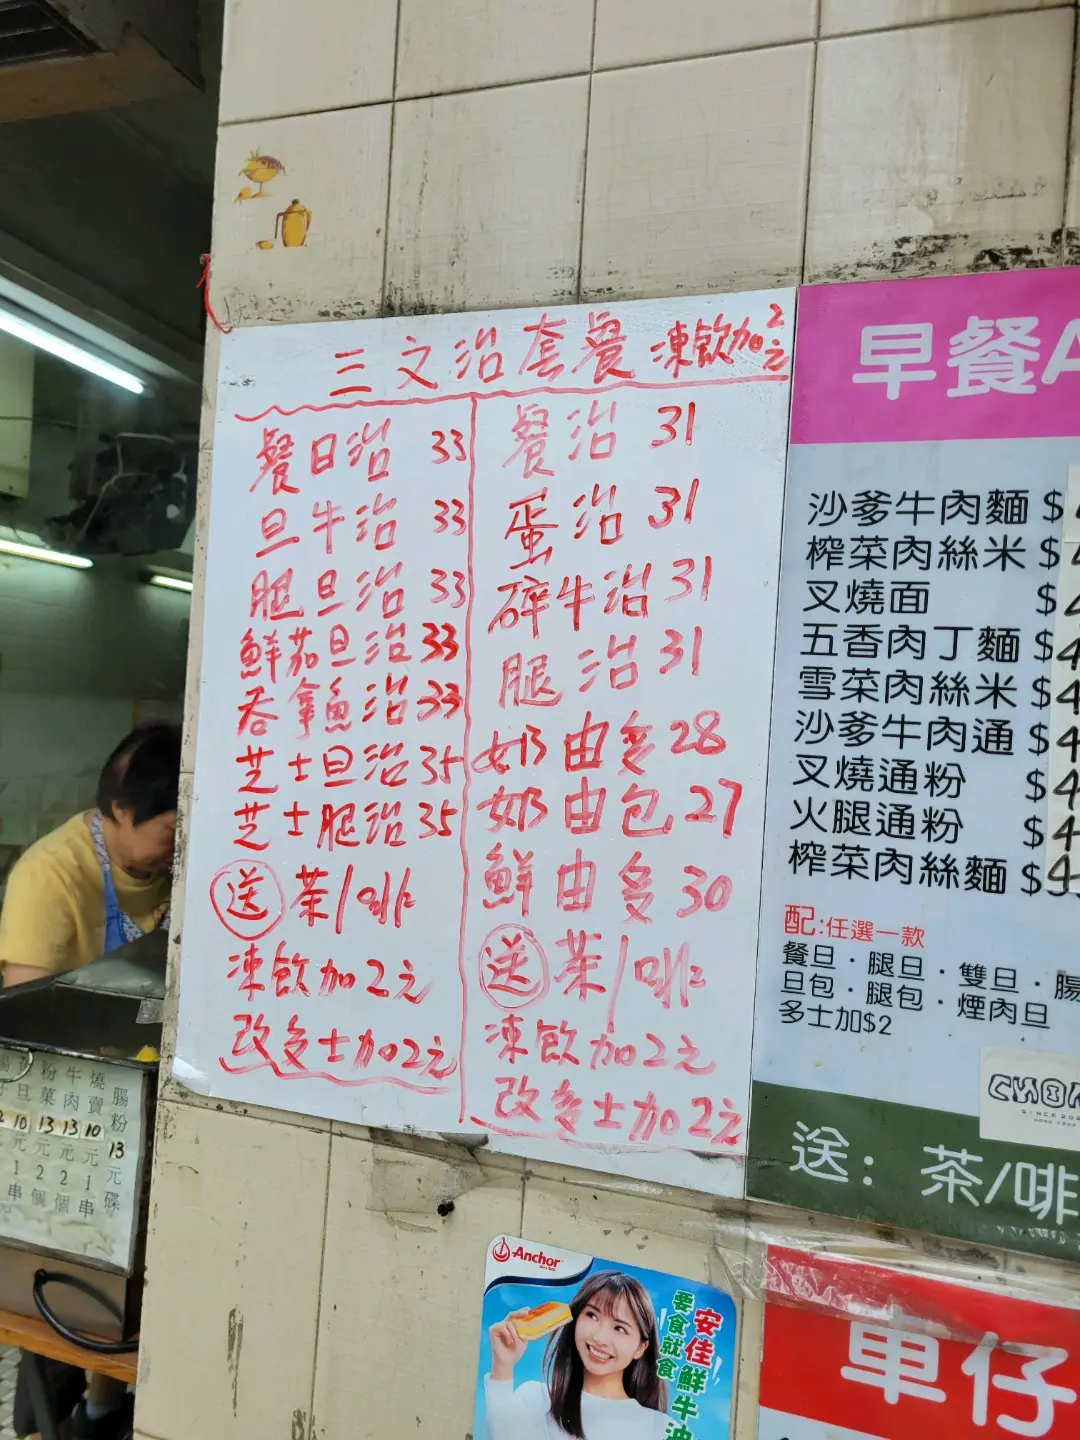 三文治套餐 凍飲加2元
餐旦治 33
旦牛治 33
腿旦治 33
鮮茄旦治 33
吞拿魚治 33
芝士旦治 35
芝士腿治 35
送 茶/啡
凍飲加2元
改多士加2元
餐治 31
蛋治 31
碎牛治 31
腿治 31
奶由多 28
奶由包 27
鮮由多 30
送 茶/啡
凍飲加2元
改多士加2元
早餐A
沙爹牛肉麵 $
榨菜肉絲米 $
叉燒面 $
五香肉丁麵 $4
雪菜肉絲米 $4
沙爹牛肉通 $4
叉燒通粉 $4
火腿通粉 $4
榨菜肉絲麵 $
配:任選一款
餐旦·腿旦·雙旦·腸
旦包·腿包·煙肉旦
多士加$2
送：茶/啡
車仔
Anchor
安佳鮮牛油
要食就食
腸粉 13元碟
燒賣 10元1串
牛肉 13元2個
粉菓 13元2個